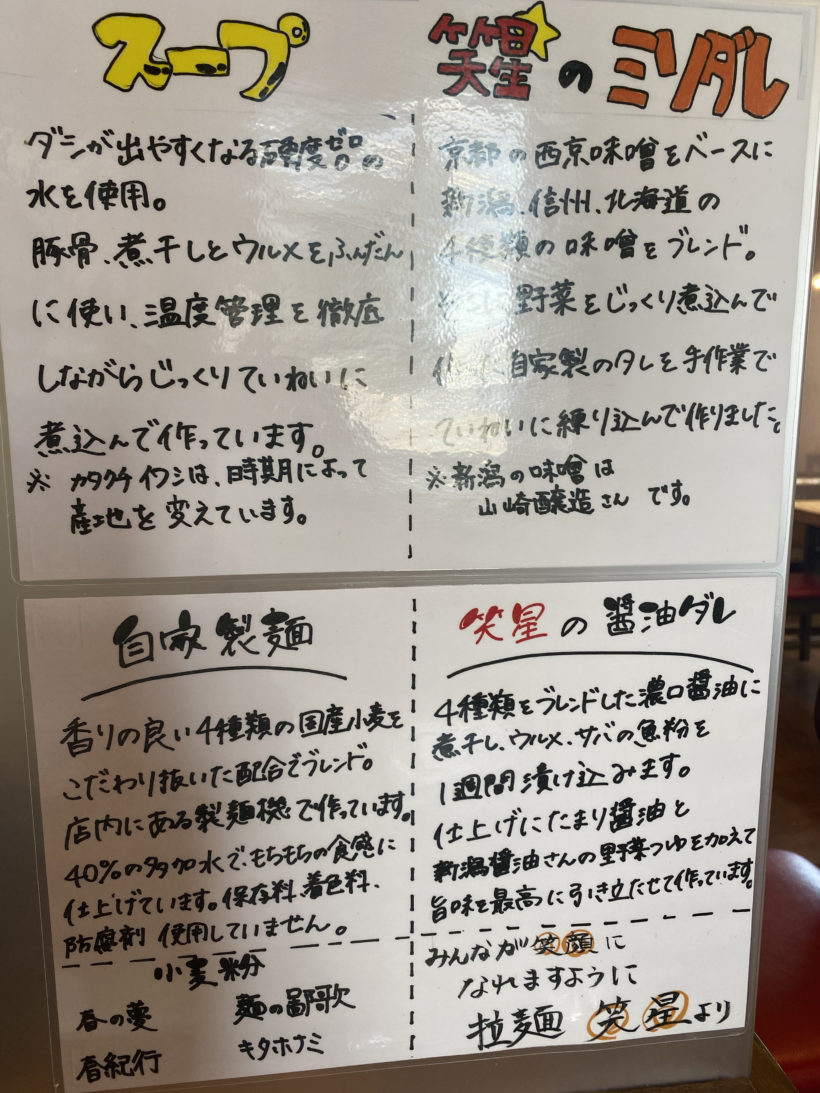 スープ
ダシが出やすくなる硬度ゼロの
水を使用。
豚骨、煮干しとウルメをふんだん
に使い、温度管理を徹底
しながらじっくりていねいに
煮込んで作っています。
※ カタクチイワシは、時期によって
産地を変えています。
笑星のミソダレ
京都の西京味噌をベースに
新潟、信州、北海道の
4種類の味噌をブレンド。
さらに野菜をじっくり煮込んで
作った自家製のタレを手作業で
ていねいに練り込んで作りました。
※新潟の味噌は
山崎醸造さんです。
自家製麺
香りの良い4種類の国産小麦を
こだわり抜いた配合でブレンド。
店内にある製麺機で作っています。
40%の多加水で、もちもちの食感に
仕上げています。保存料、着色料、
防腐剤 使用していません。
小麦粉
春の夢 麺の鄙歌
春紀行 キタホナミ
笑星の醤油ダレ
4種類をブレンドした濃口醤油に
煮干し、ウルメ、サバの魚粉を
1週間漬け込みます。
仕上げにたまり醤油と
新潟醤油さんの野菜つゆを加えて
旨味を最高に引き立たせて作っています。
みんなが笑顔に
なれますように
拉麺 笑星より